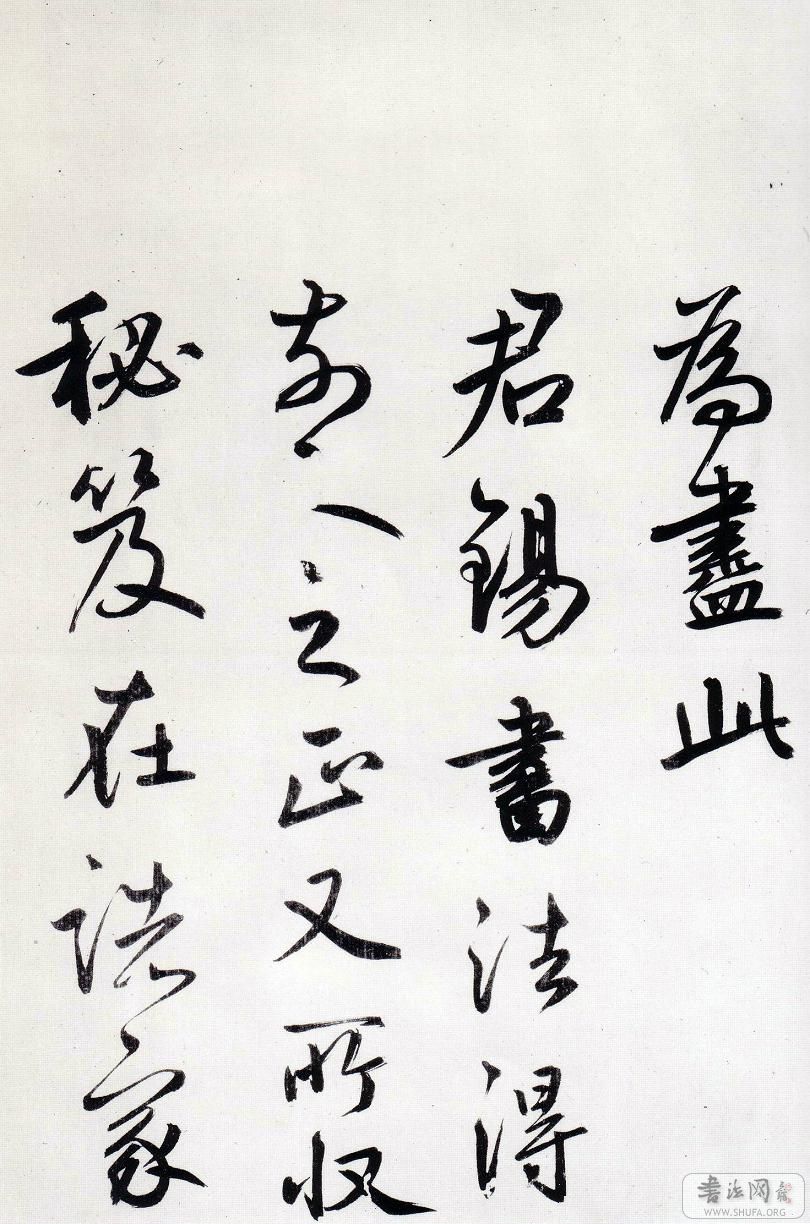 為盡此
君錫書法得
前人之正又所收
秘笈在諸家
書法网
WWW.SHUFA.ORG